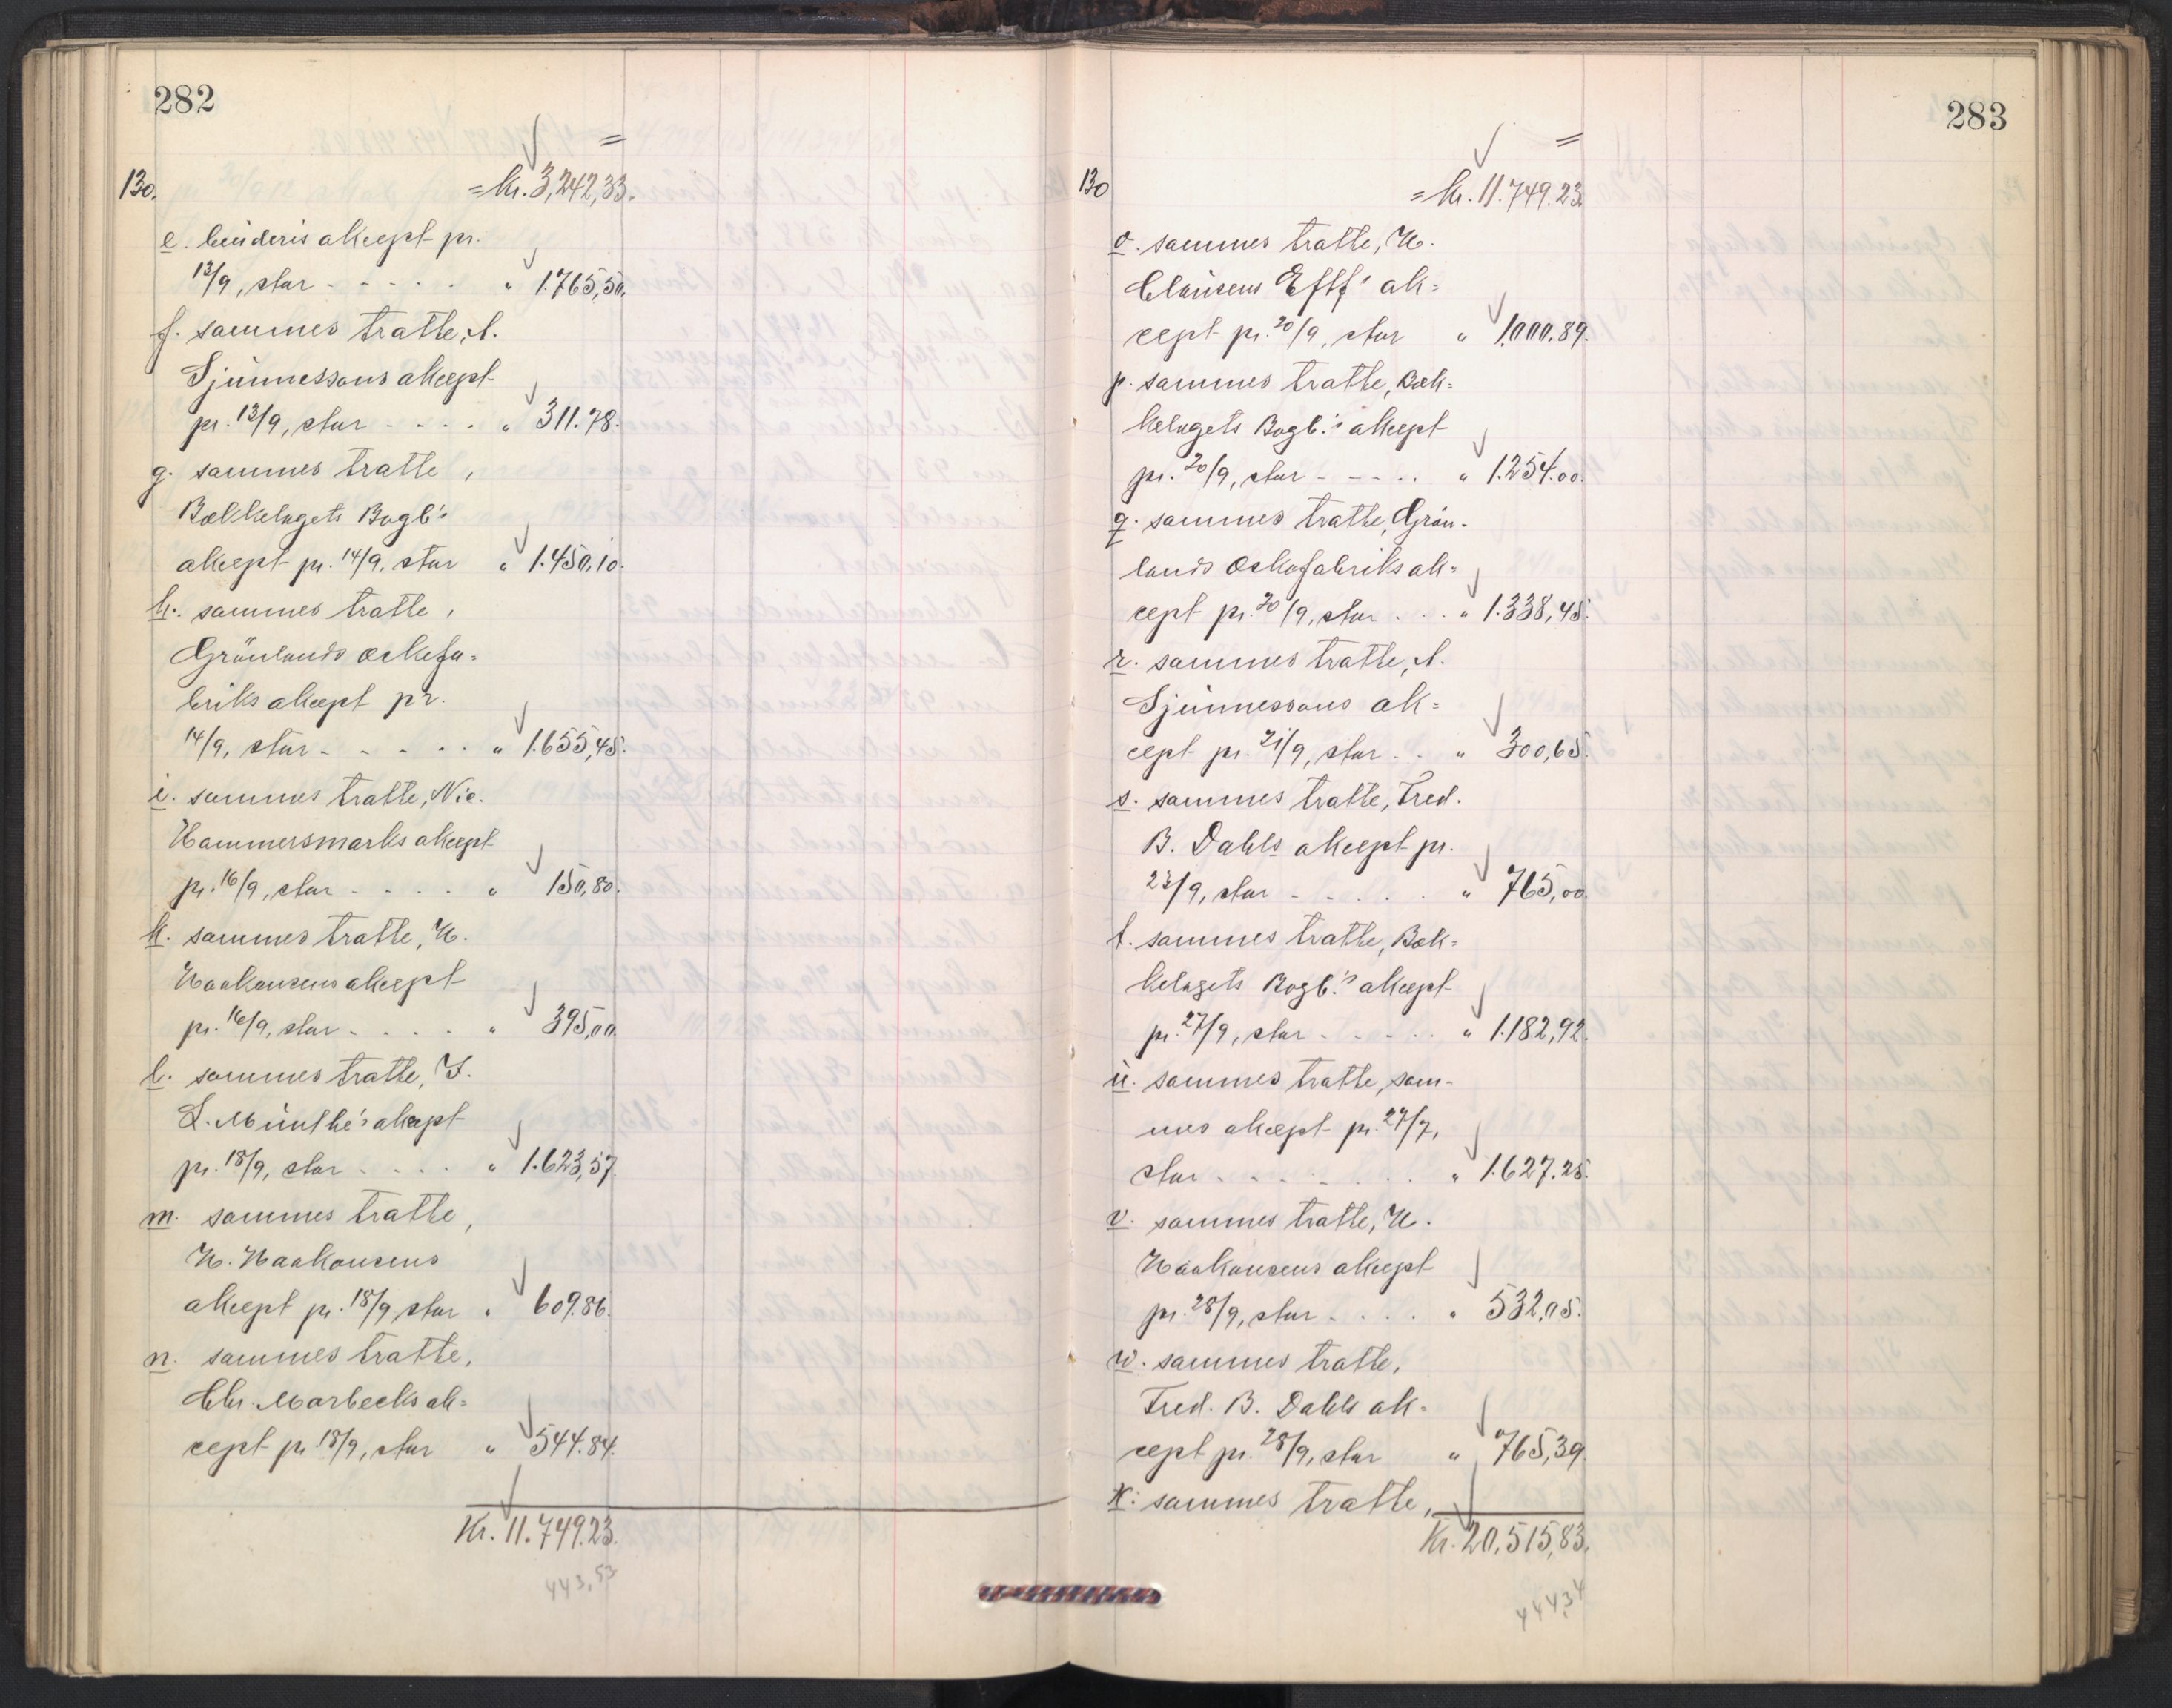 282
130. = Kr. 3,242,33.
e. Cinderis akcept pr.
13/9, stor - - - - - " 1.765,50.
f. sammes tratte, A.
Sjunnessons akcept
pr. 13/9, stor - - - - " 311.78.
g. sammes tratte,
Bækkelagets Bogb's
akcept pr. 14/9, stor " 1.450,10.
h. sammes tratte,
Grönlands æskefa=
briks akcept pr.
14/9, stor - - - - - " 1.655,45.
i. sammes tratte, Nic.
Hammersmarks akcept
pr. 16/9, stor - - - - " 150,80.
k. sammes tratte, H.
Haakonsens akcept
pr. 16/9, stor - - - - " 395,00.
l. sammes tratte, J.
L. Munthe's akcept
pr. 18/9, stor - - - - " 1.623,57.
m. sammes tratte,
H. Haakonsens
akcept pr. 18/9 stor " 609.86.
n. sammes tratte,
Chr. Morbecks ak=
cept pr. 18/9, stor " 544.84.
Kr. 11.749.23.
443,53
283
130 = Kr. 11.749.23.
o. sammes tratte, H.
Clausens Eftf's ak=
cept pr. 20/9, stor " 1.000.89.
p. sammes tratte, Bæk=
kelagets Bogb.'s akcept
pr. 20/9, stor - - - - - " 1.254.00.
q. sammes tratte, Grön-
lands Æskefabriks ak=
cept pr. 20/9, stor - - - " 1.338,45.
r. sammes tratte, A.
Sjunnessons ak=
cept pr. 21/9, stor - - " 300,65.
s. sammes tratte, Fred.
B. Dahls akcept pr.
23/9, stor - - - - - " 765,00.
t. sammes tratte, Bæk=
kelagets Bogb.'s akcept
pr. 27/9, stor - - - - - " 1.182,92.
u. sammes tratte, sam-
mes akcept pr. 27/9,
stor - - - - - - - " 1.627.25.
v. sammes tratte, H.
Haakonsens akcept
pr. 28/9, stor - - - - " 532,05.
w. sammes tratte,
Fred. B. Dahls ak-
cept pr. 28/9, stor " 765,39.
x. sammes tratte,
Kr. 20.515,83.
444,34